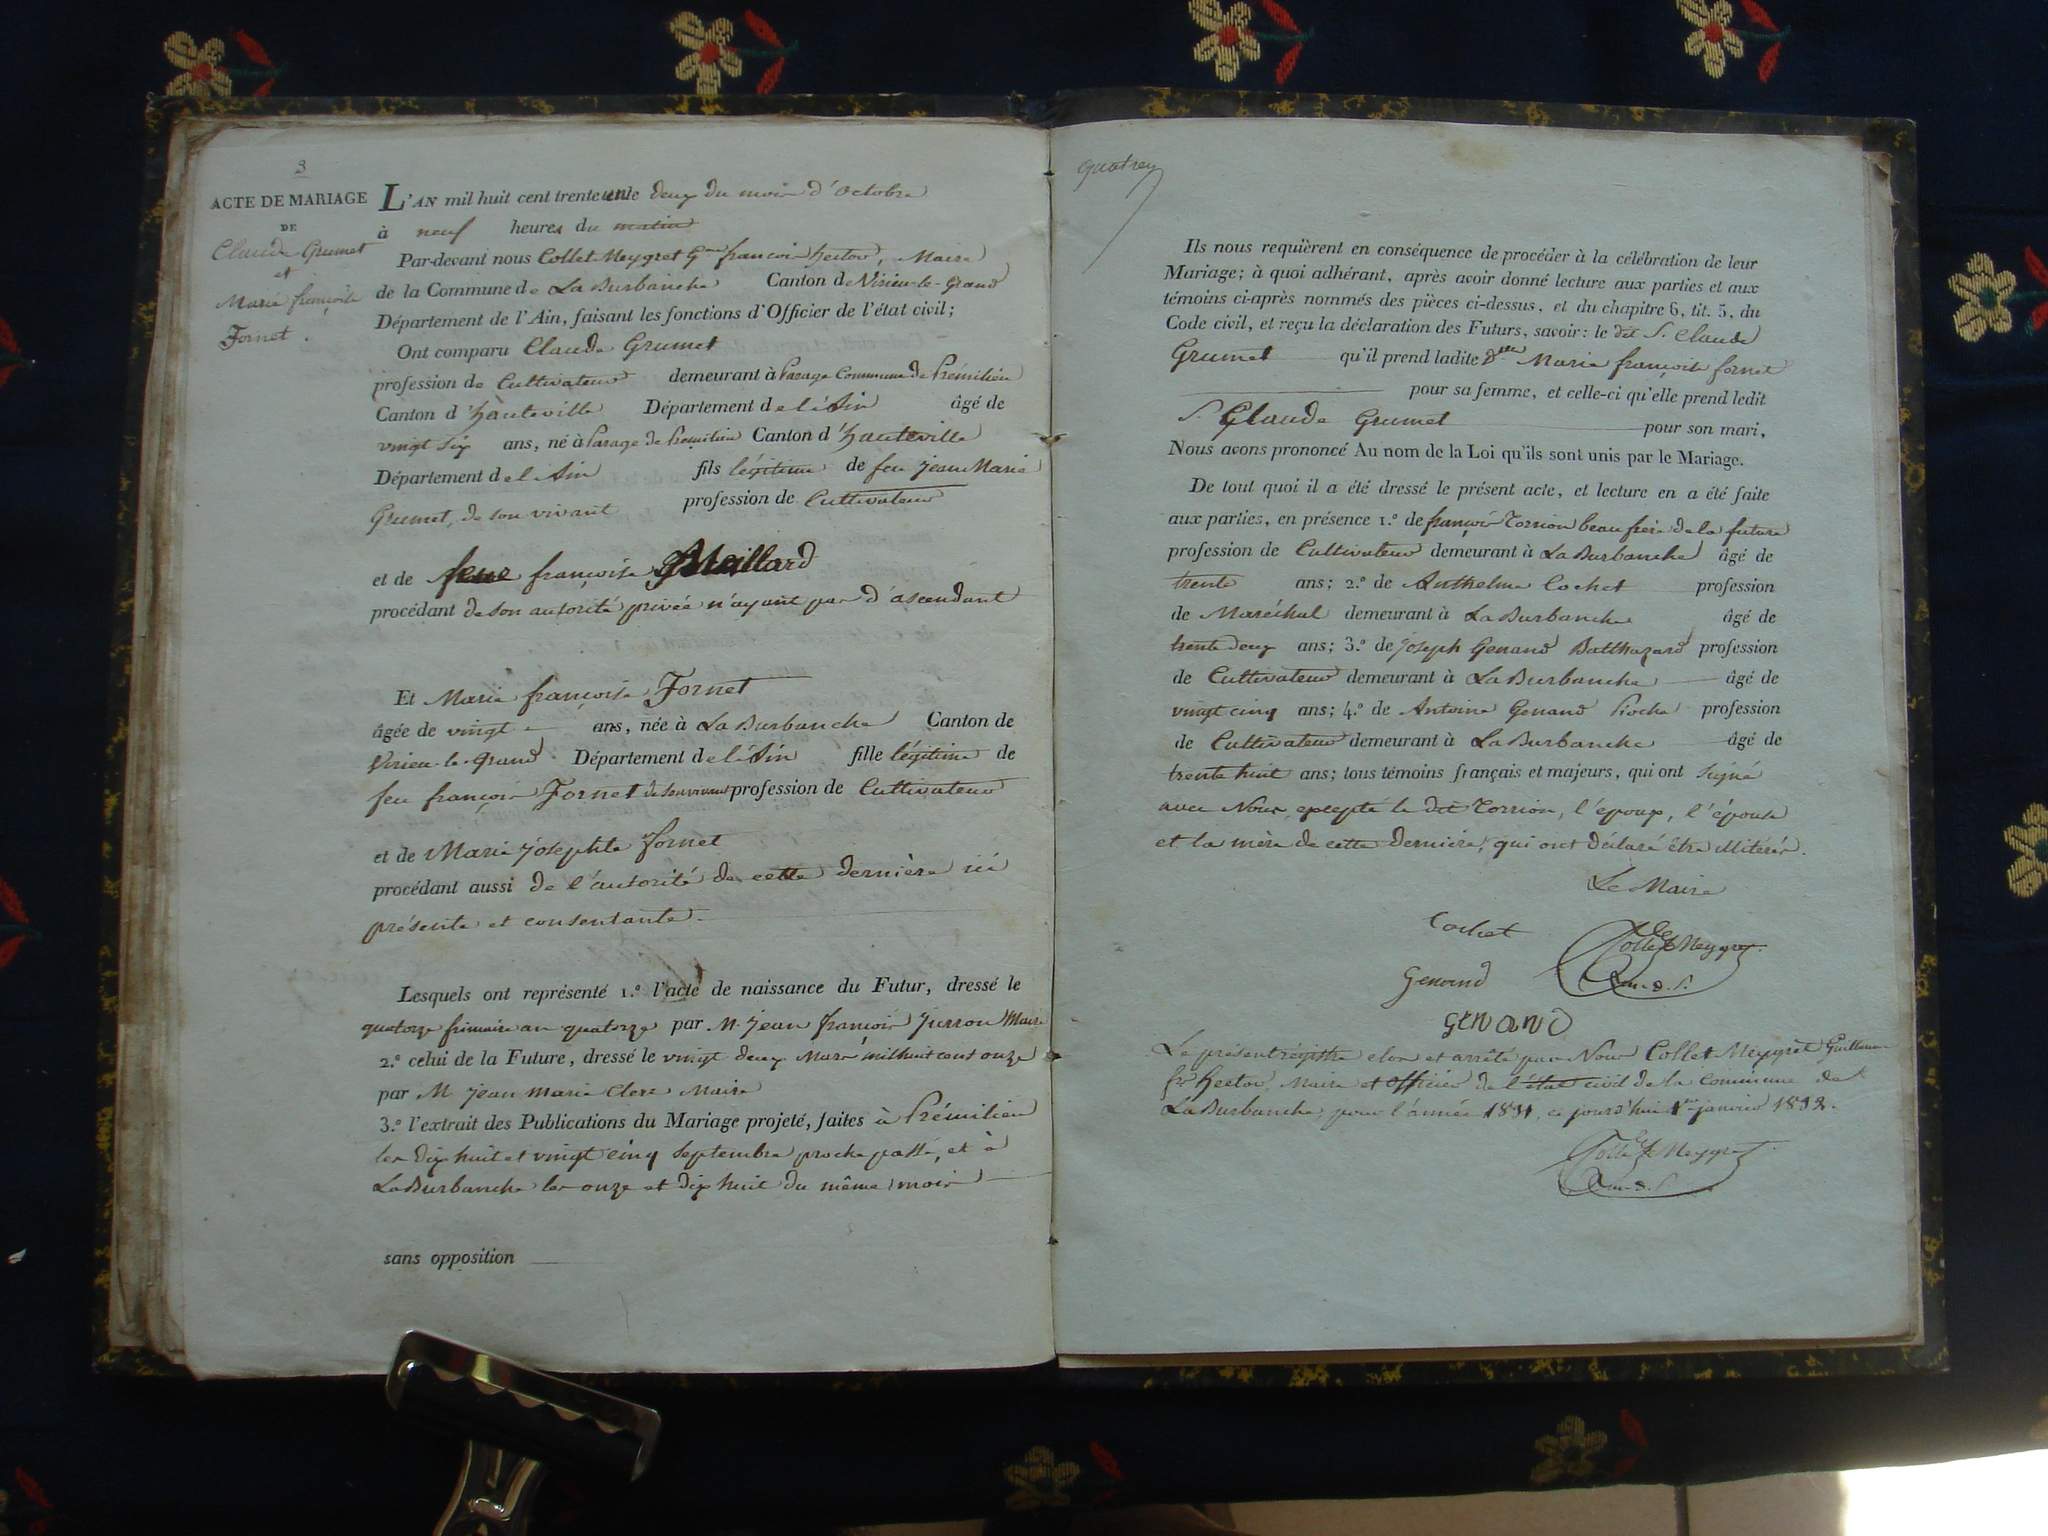 3
ACTE DE MARIAGE
DE
Claude Grumet
et
Marie françoise
Fornet.
L'AN mil huit cent trente un le deux du mois d'Octobre
à neuf heures du matin
Par-devant nous Collet-Meygret Gme françois hector, Maire
de la Commune de La Burbanche Canton de Virieu-le-Grand
Département de l'Ain, faisant les fonctions d'Officier de l'état civil;
Ont comparu Claude Grumet
profession de Cultivateur demeurant à Parage Commune de Prémilieu
Canton d'hauteville Département de l'Ain âgé de
vingt six ans, né à Parage de Premilieu Canton d'hauteville
Département de l'Ain fils légitime de feu jean Marie
Grumet, de son vivant profession de Cultivateur
et de feue françoise Maillard
procédant de son autorité privée n'ayant pas d'ascendant
Et Marie françoise Fornet
âgée de vingt ans, née à La Burbanche Canton de
Virieu-le-Grand Département de l'Ain fille légitime de
feu françois Fornet de son vivant profession de Cultivateur
et de Marie josephte fornet
procédant aussi de l'autorité de cette dernière ici
présente et consentante.
Lesquels ont représenté 1.° l'acte de naissance du Futur, dressé le
quatorze frimaire an quatorze par M. jean françois Maire
2.° celui de la Future, dressé le vingt deux Mars mil huit cent onze
par M jean marie Clerc Maire
3.° l'extrait des Publications du Mariage projeté, faites à Prémilieu
les dix huit et vingt cinq septembre proche passé, et à
La Burbanche les onze et dix huit du même mois
sans opposition
quatre
Ils nous requièrent en conséquence de procéder à la célébration de leur
Mariage; à quoi adhérant, après avoir donné lecture aux parties et aux
témoins ci-après nommés des pièces ci-dessus, et du chapitre 6, tit. 5, du
Code civil, et reçu la déclaration des Futurs, savoir: le dit S. Claude
Grumet qu'il prend ladite dlle Marie françoise fornet
pour sa femme, et celle-ci qu'elle prend ledit
S. Claude Grumet pour son mari,
Nous avons prononcé Au nom de la Loi qu'ils sont unis par le Mariage.
De tout quoi il a été dressé le présent acte, et lecture en a été faite
aux parties, en présence 1.° de françois Torrion beau frère de la future
profession de Cultivateur demeurant à La Burbanche âgé de
trente ans; 2.° de Anthelme Cochet profession
de Maréchal demeurant à La Burbanche âgé de
trente deux ans; 3.° de joseph Genand Balthazard profession
de Cultivateur demeurant à La Burbanche âgé de
vingt cinq ans; 4.° de Antoine Genand Pioche profession
de Cultivateur demeurant à La Burbanche âgé de
trente huit ans; tous témoins français et majeurs, qui ont signé
avec Nous, excepté le dit Torrion, l'époux, l'épouse
et la mère de cette dernière, qui ont déclaré être illitérés.
Le Maire
Cochet
Collet Meygret
Genand
GENAND
Le présent régistre clos et arrêté par Nous Collet Meygret Guillaume
fs hector, Maire et officier de l'état civil de la commune de
La Burbanche, pour l'année 1831, ce jourd'hui 1er janvier 1832.
Collet Meygret